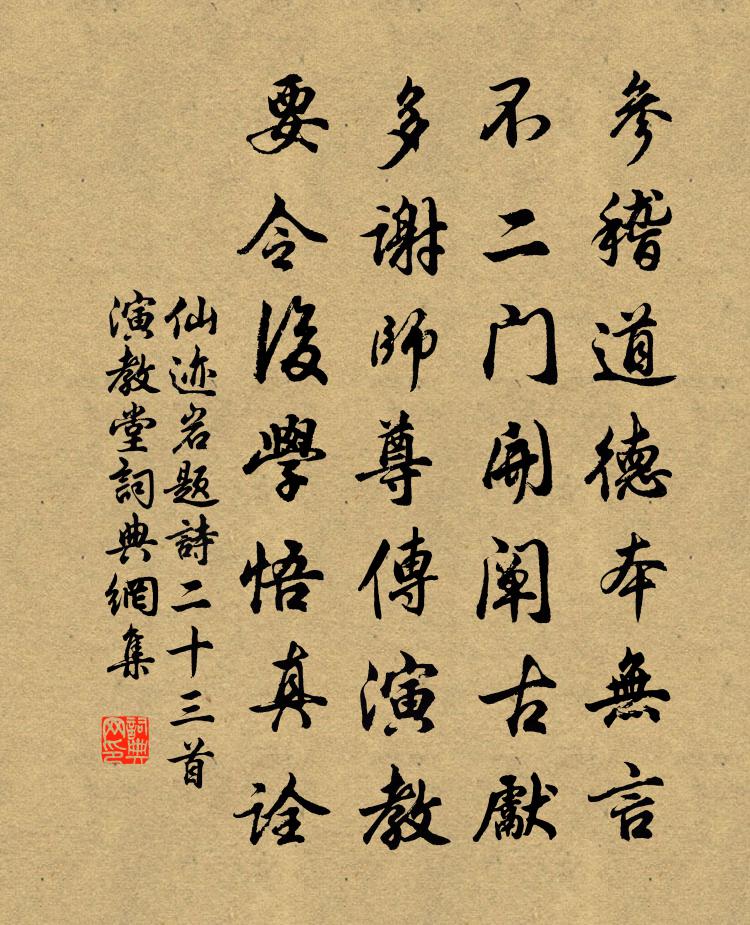 參稽道德本無言
不二门開阐古獻
多謝師尊傳演教
要令後學悟真詮
仙迹岩题詩二十三首
演教堂詞典網集
詞典
网印